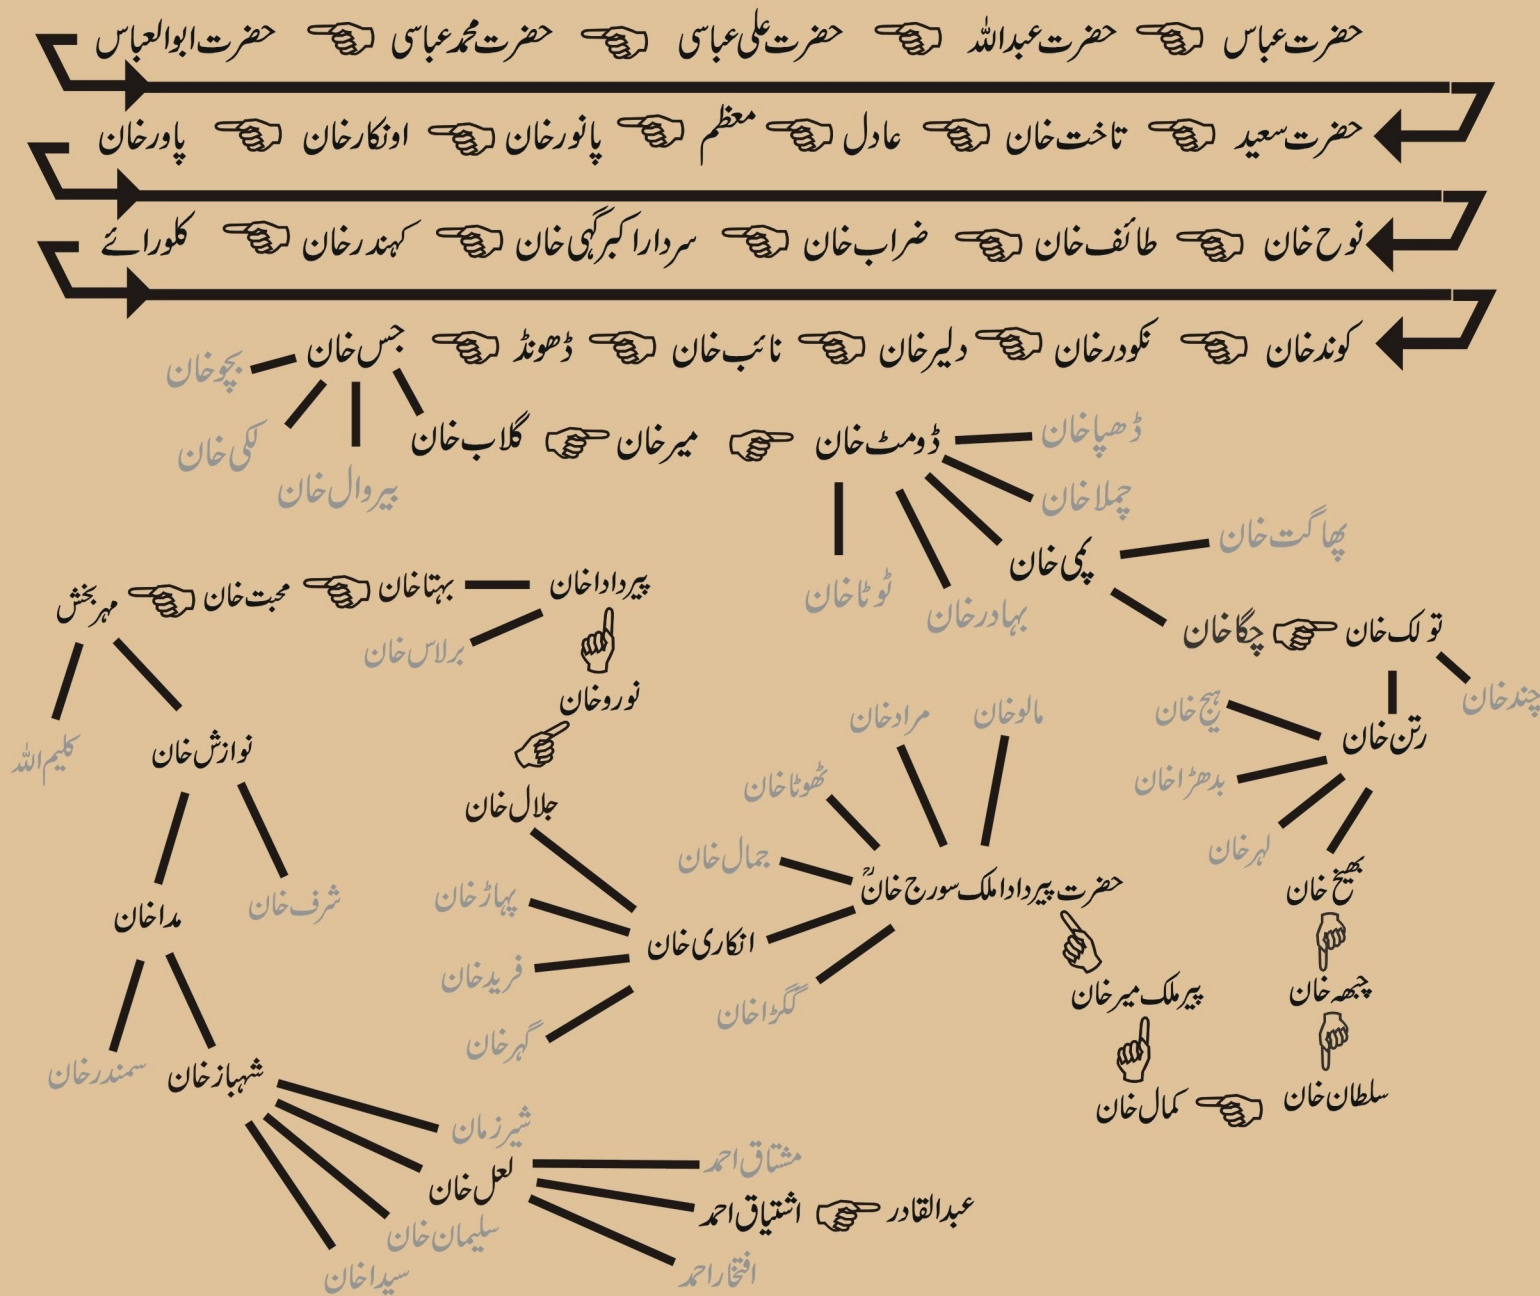 حضرت عباس حضرت عبداللہ حضرت علی عباسی حضرت محمد عباسی حضرت ابوالعباس
حضرت سعید تاخت خان عادل معظم پانورخان اونکارخان پاورخان
نوح خان طائف خان ضراب خان سردار اکبر گہی خان کہندرخان کلورائے
کوندخان نکودرخان دلیرخان نائب خان ڈھونڈ جس خان
بچوخان
لکی خان
بیروال خان
گلاب خان میرخان ڈومٹ خان
ڈھپاخان
چملاخان
پمی خان
بہادرخان
ٹوٹاخان
پھاگت خان
چگاخان تولک خان
چندخان
رتن خان
ہیج خان
بدھڑاخان
لہرخان
بھیخ خان
چبھہ خان
سلطان خان
کمال خان
پیرملک میرخان
حضرت پیردادا ملک سورج خانؒ
مالوخان
مرادخان
ٹھوٹاخان
جمال خان
انکاری خان
گگڑاخان
جلال خان
پہاڑخان
فریدخان
گہرخان
نوروخان
پیردادا خان
بہتاخان محبت خان مہربخش
برلاس خان
کلیم اللہ
نوازش خان
شرف خان
مداخان
سمندرخان
شہبازخان
شیرزمان
لعل خان
سلیمان خان
سیداخان
مشتاق احمد
اشتیاق احمد عبدالقادر
افتخاراحمد